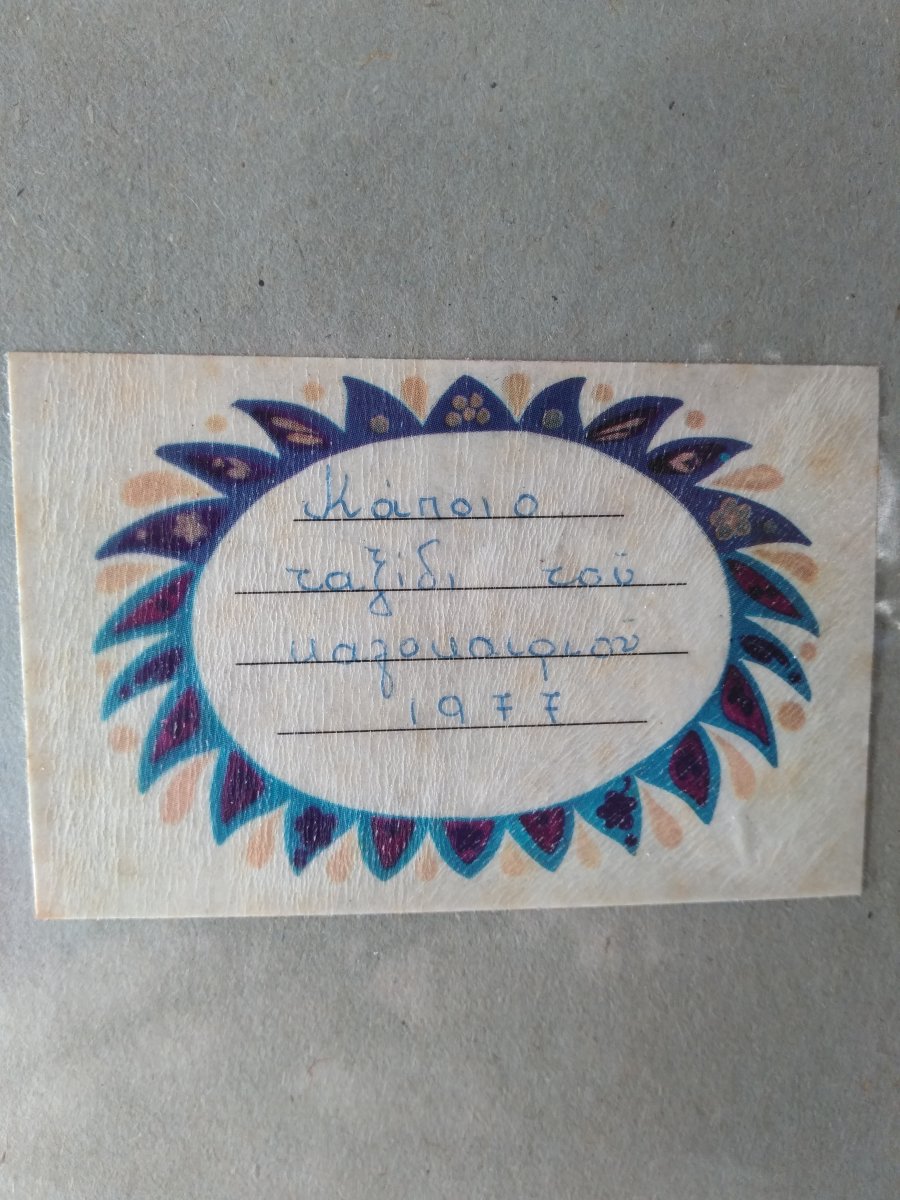 Κάποιο
ταξίδι τοῦ
καλοκαιριοῦ
1977